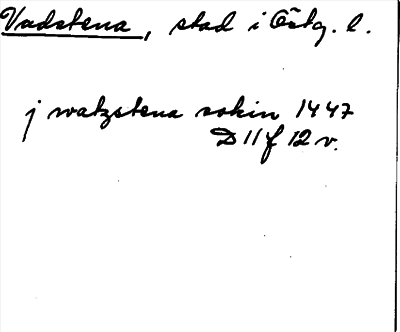 Vadstena, stad i Östg. l.
j watzstena sokin 1447
D 11 f 12 v.